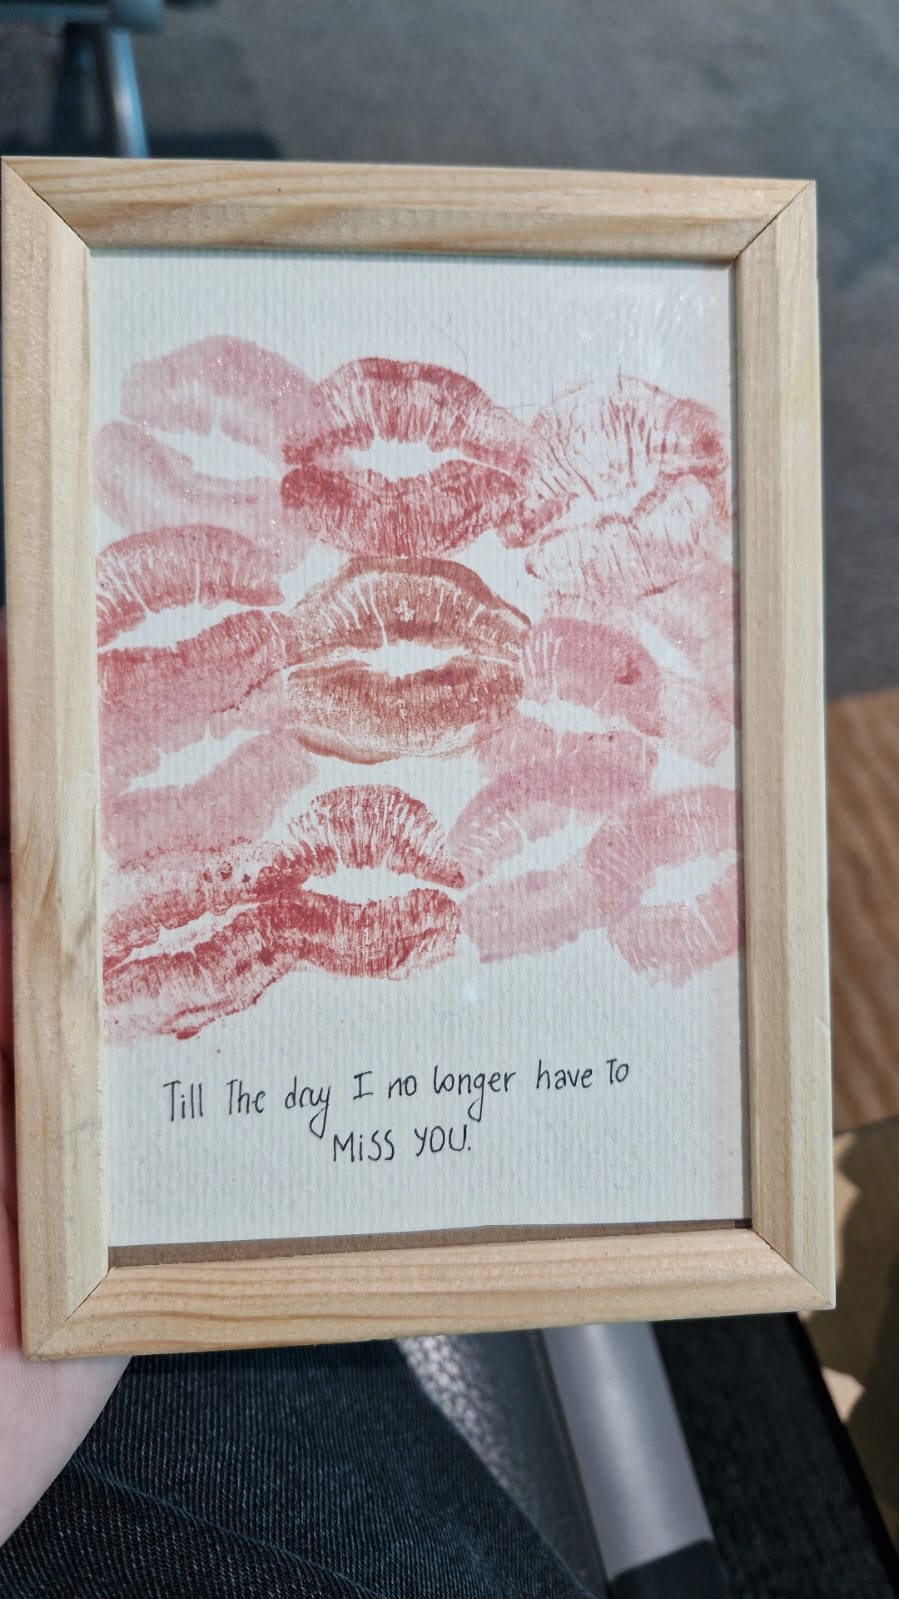 Till The day I no longer have To
MiSS YOU.